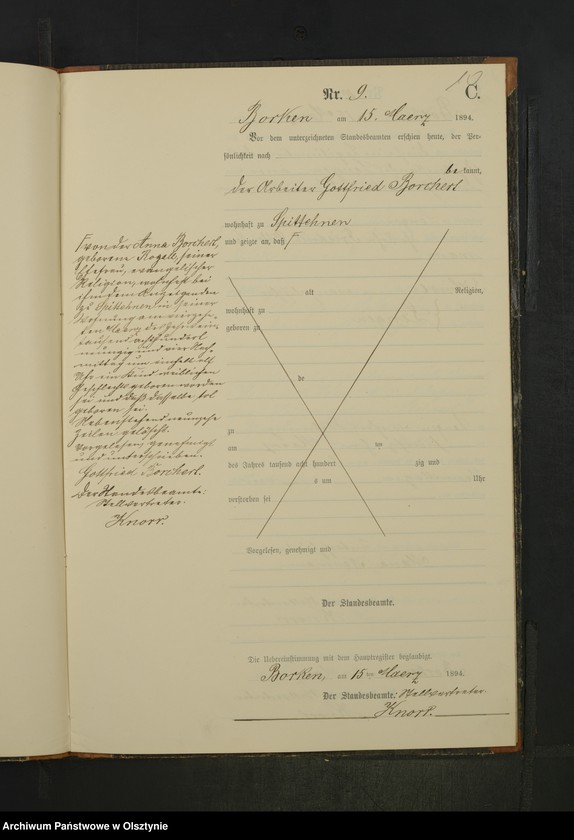 18
Nr. 9. C.
Borken am 15. Maerz 1894.
Vor dem unterzeichneten Standesbeamten erschien heute, der Per-
sönlichkeit nach
be kannt,
der Arbeiter Gottfried Borchert
wohnhaft zu Spittehnen
und zeigte an, daß
von der Anna Borchert,
geborene Rogall, seiner
Ehefrau, evangelischer
Religion, wohnhaft bei
dem Anzeigenden
zu Spittehnen in seiner
Wohnung am vierzehn-
ten Maerz des Jahres ein-
tausend achthundert
neunzig und vier Nach-
mittag um
Uhr ein Kind weiblichen
Geschlechts geboren worden
sei und daß dasselbe tot
geboren sei.
Nebenstehend neunzehn
Zeilen gelöscht.
Vorgelesen, genehmigt
und unterschrieben:
Gottfried Borchert.
Der Standesbeamte:
Stellvertreter.
Knorr.
alt Religion,
wohnhaft zu
geboren zu
de
zu
am ten
des Jahres tausend acht hundert zig und
s um Uhr
verstorben sei
Vorgelesen, genehmigt und
Der Standesbeamte.
Die Uebereinstimmung mit dem Hauptregister beglaubigt.
Borken, am 15 ten Maerz 1894.
Der Standesbeamte: Stellvertreter.
Knorr.
Archiwum Państwowe w Olsztynie